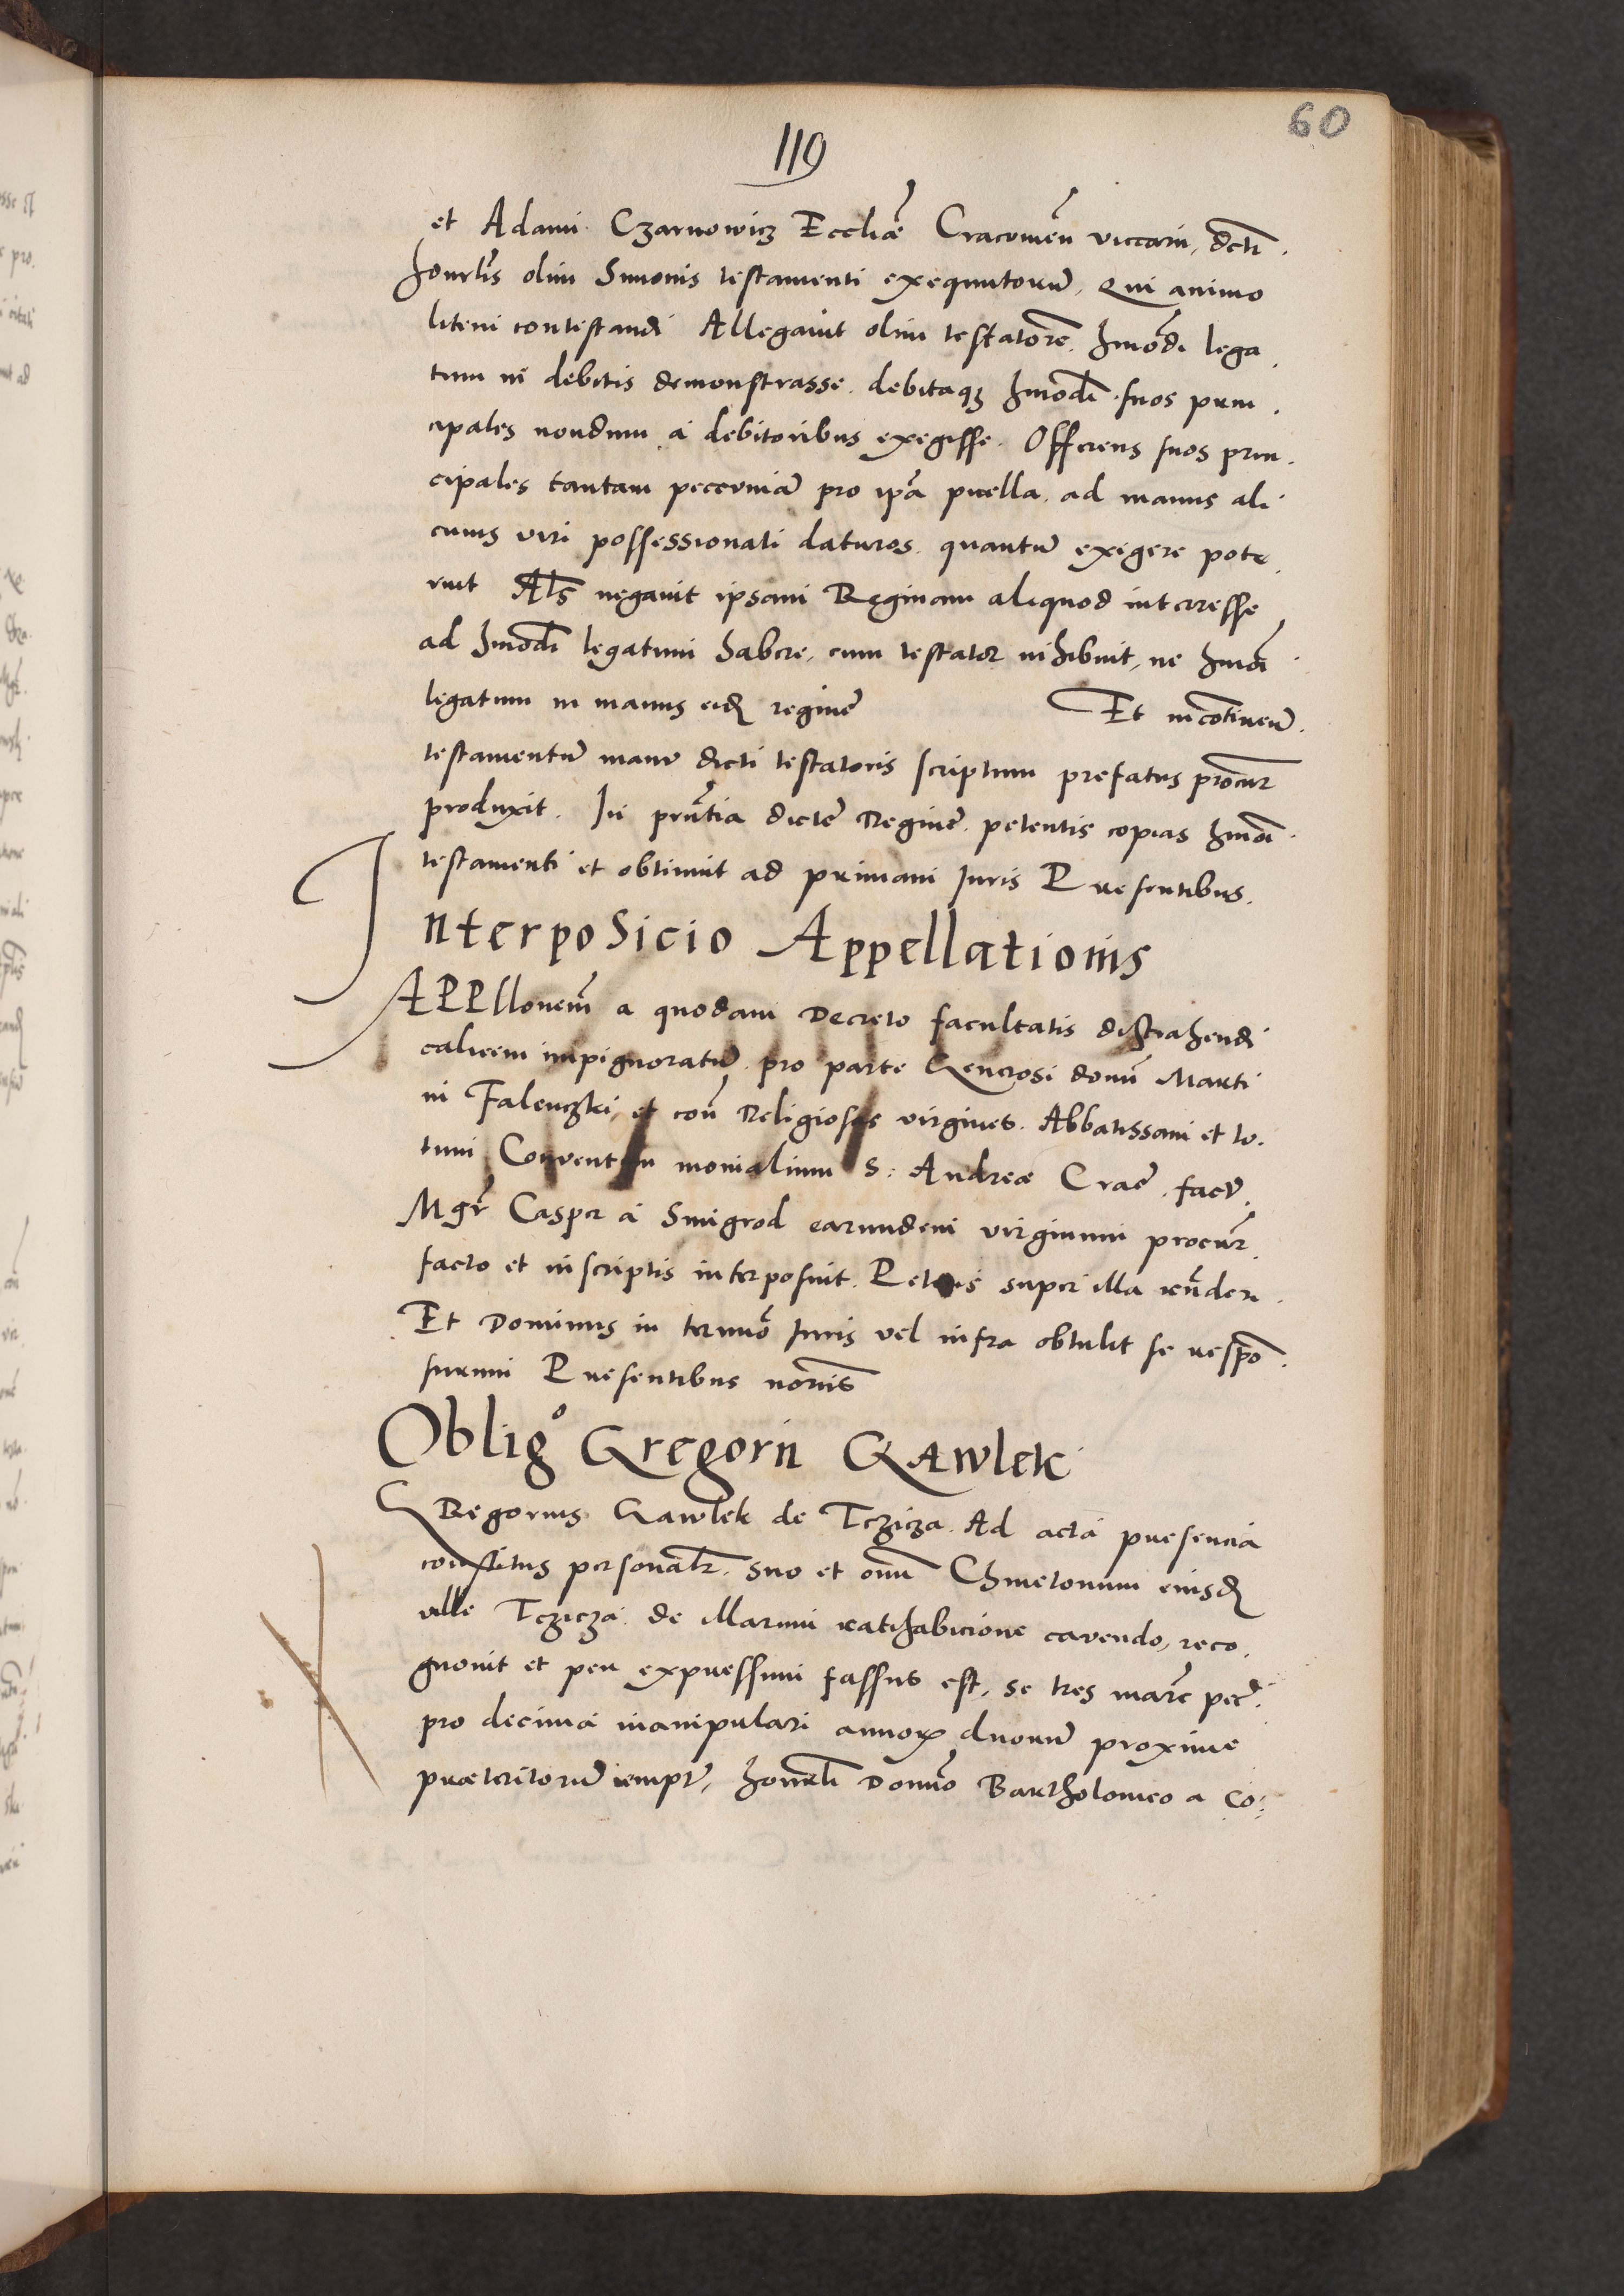 60
119
et Adami Czarnowicz Eccliæ Cracovien viccarii, dcti
honrlis olim Simonis testamenti exequutorum, Qui animo
litem contestandi Allegavit olim testatorē hmōdi lega
tum in debitis demonstrasse. debitaqȝ hmōdi suos prin
cipales nondum a debitoribus exegisse. Offerens suos prin
cipales tantam peccuniā pro ipā puella, ad manus ali
cuius viri possessionati daturos, quantū exigere pote
runt Als negavit ipsam Reginam aliquod interresse
ad hmōdi legatum habere, cum testator inhibuit, ne hmōi
legatum in manus eidē reginē Et incōtinenū
testamentū manu dicti testatoris scriptum prefatus procur
produxit. In prntia dictē Reginē petentis copias hmōi
testamenti et obtinuit ad primam Iuris Presentibus.
Interposicio Appellationis
APPllonem a quodam Decreto facultatis distrahendi
calicem impignoratū pro parte Generosi domī Marti
ni Falenczki, et con Religiosas virgines. Abbatissam et to
tum Conventum monialium S: Andreæ Cracē. factū
Mgr Casper a Smigrod earundem virginum procur
facto et in scriptis interposuit. Petens super illa rnderi
Et Dominus in termō Iuris vel infra obtulit se respō
surum Presentibus notariis
Obligo Gregorii Gawlek
GRegorius Gawlek de Tczicza Ad acta presencia
constitus personalr. suo et omī Chmetonum eiusdē
ville Tczicza de illarum ratihabicione cavendo, reco
gnovit et per expressum fassus est, se tres marc pec
pro decima manipulari annorum duorū proxime
præteritorū empt, honrli Domīo Bartholomeo a Co: